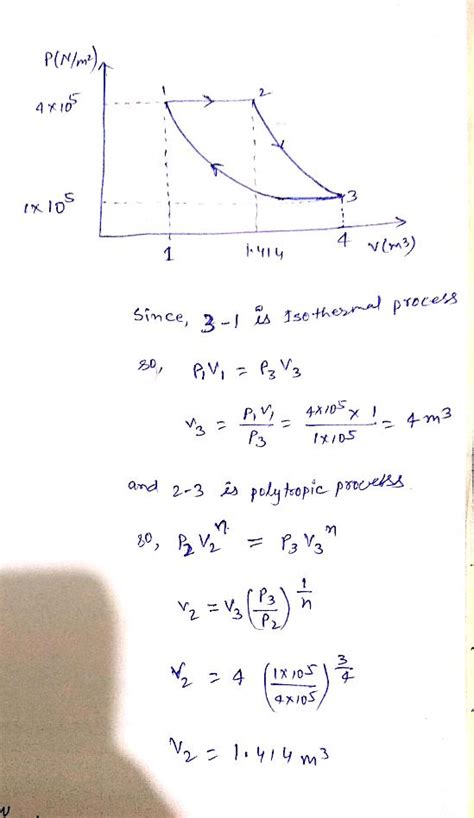 P(N/m²)
1
2
4×10⁵
1×10⁵
3
1
1.414
4
V(m³)
Since, 3-1 is Isothermal process
so, P₁V₁ = P₃V₃
V₃ = P₁V₁/P₃ = 4×10⁵ × 1/1×10⁵ = 4 m³
and 2-3 is polytropic process.
so, P₂V₂ⁿ = P₃V₃ⁿ
V₂ = V₃(P₃/P₂)^1/n
V₂ = 4 (1×10⁵/4×10⁵)^3/4
V₂ = 1.414 m³